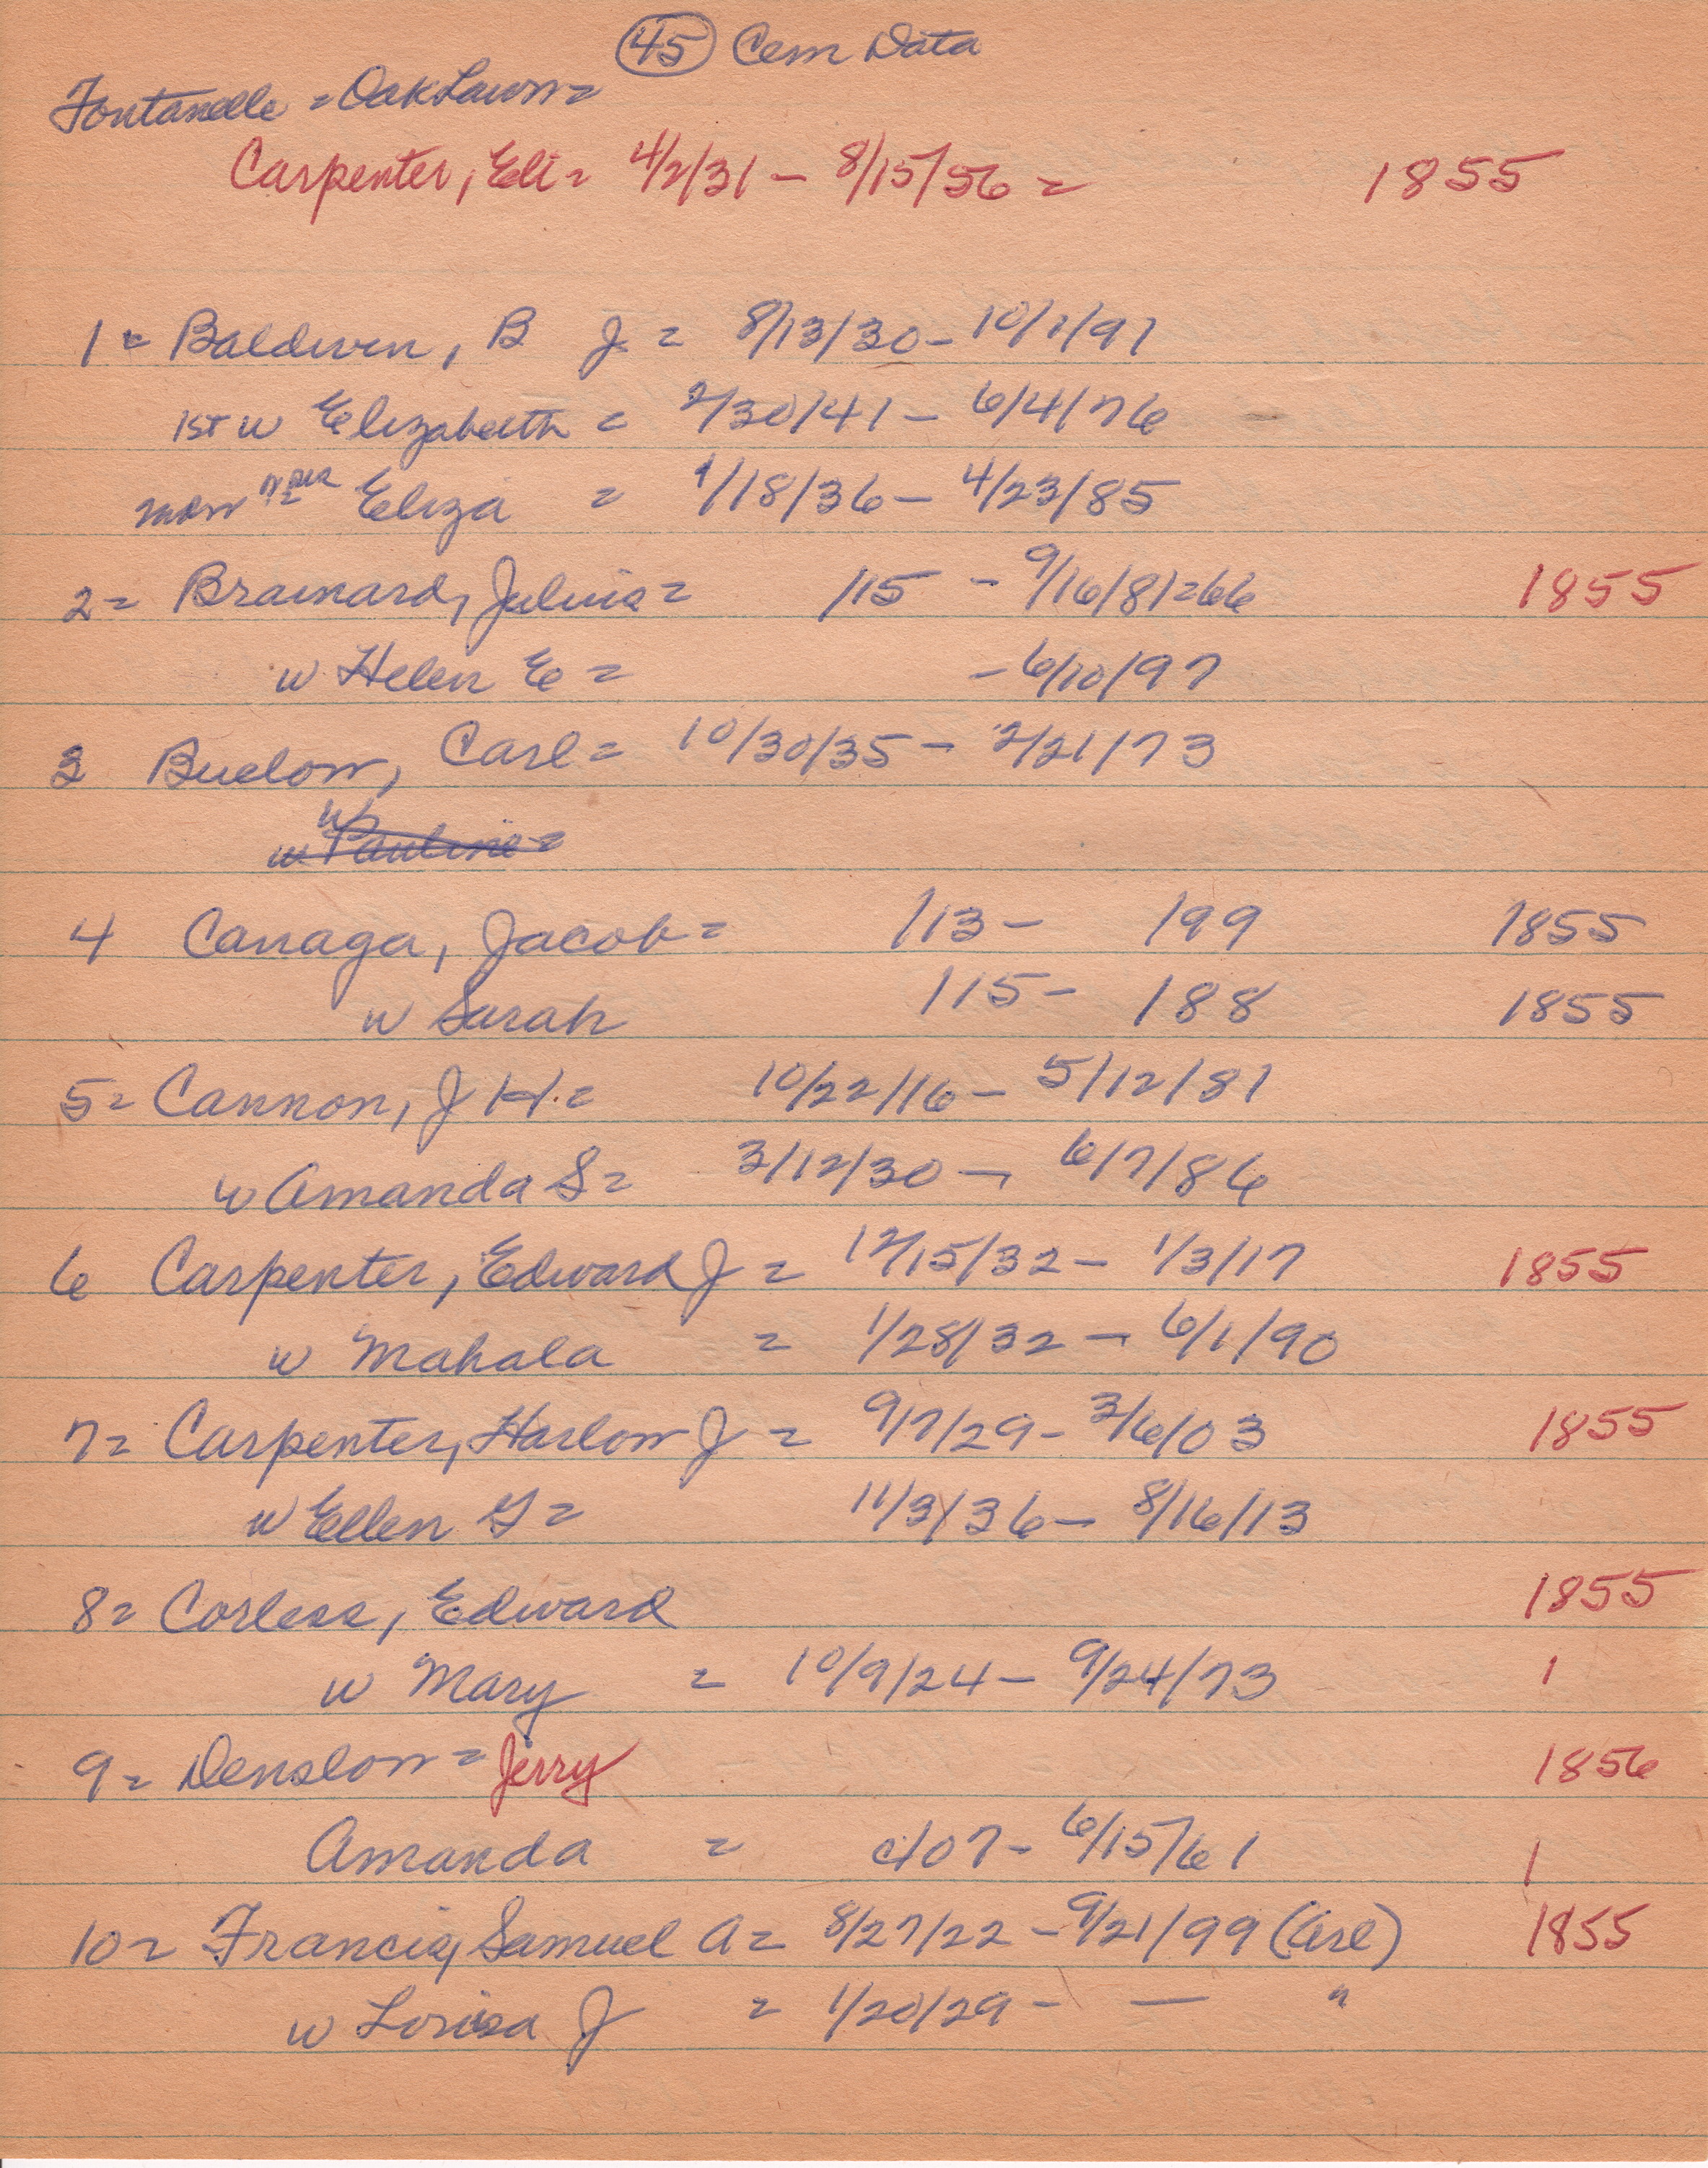 (45) Cem Data
Fontanelle = OakLawn =
Carpenter, Eli = 4/2/31 - 8/15/56 = 1855
1 = Baldwin, B J = 8/13/30 - 10/1/97
1st w Elizabeth = 2/30/41 - 6/4/76
Eliza = 1/18/36 - 4/23/85
2 = Brainard, Julius = /15 - 9/16/81=66 1855
w Helen E = - 6/10/97
3 Buelow, Carl = 10/30/35 - 2/21/73
w Pauline =
4 Canaga, Jacob = /13 - /99 1855
w Sarah /15 - /88 1855
5 = Cannon, J H. = 10/22/16 - 5/12/81
w Amanda S = 3/12/30 - 6/7/86
6 Carpenter, Edward J = 12/15/32 - 1/3/17 1855
w Mahala = 1/28/32 - 6/1/90
7 = Carpenter, Harlow J = 9/7/29 - 3/6/03 1855
w Ellen G = 11/3/36 - 8/16/13
8 = Corless, Edward 1855
w Mary = 10/9/24 - 9/24/73 1
9 = Denslow = Jerry 1856
Amanda = c/07 - 6/15/61 1
10 = Francis, Samuel A = 8/27/22 - 9/21/99 (Arl) 1855
w Lovisa J = 1/20/29 - — "